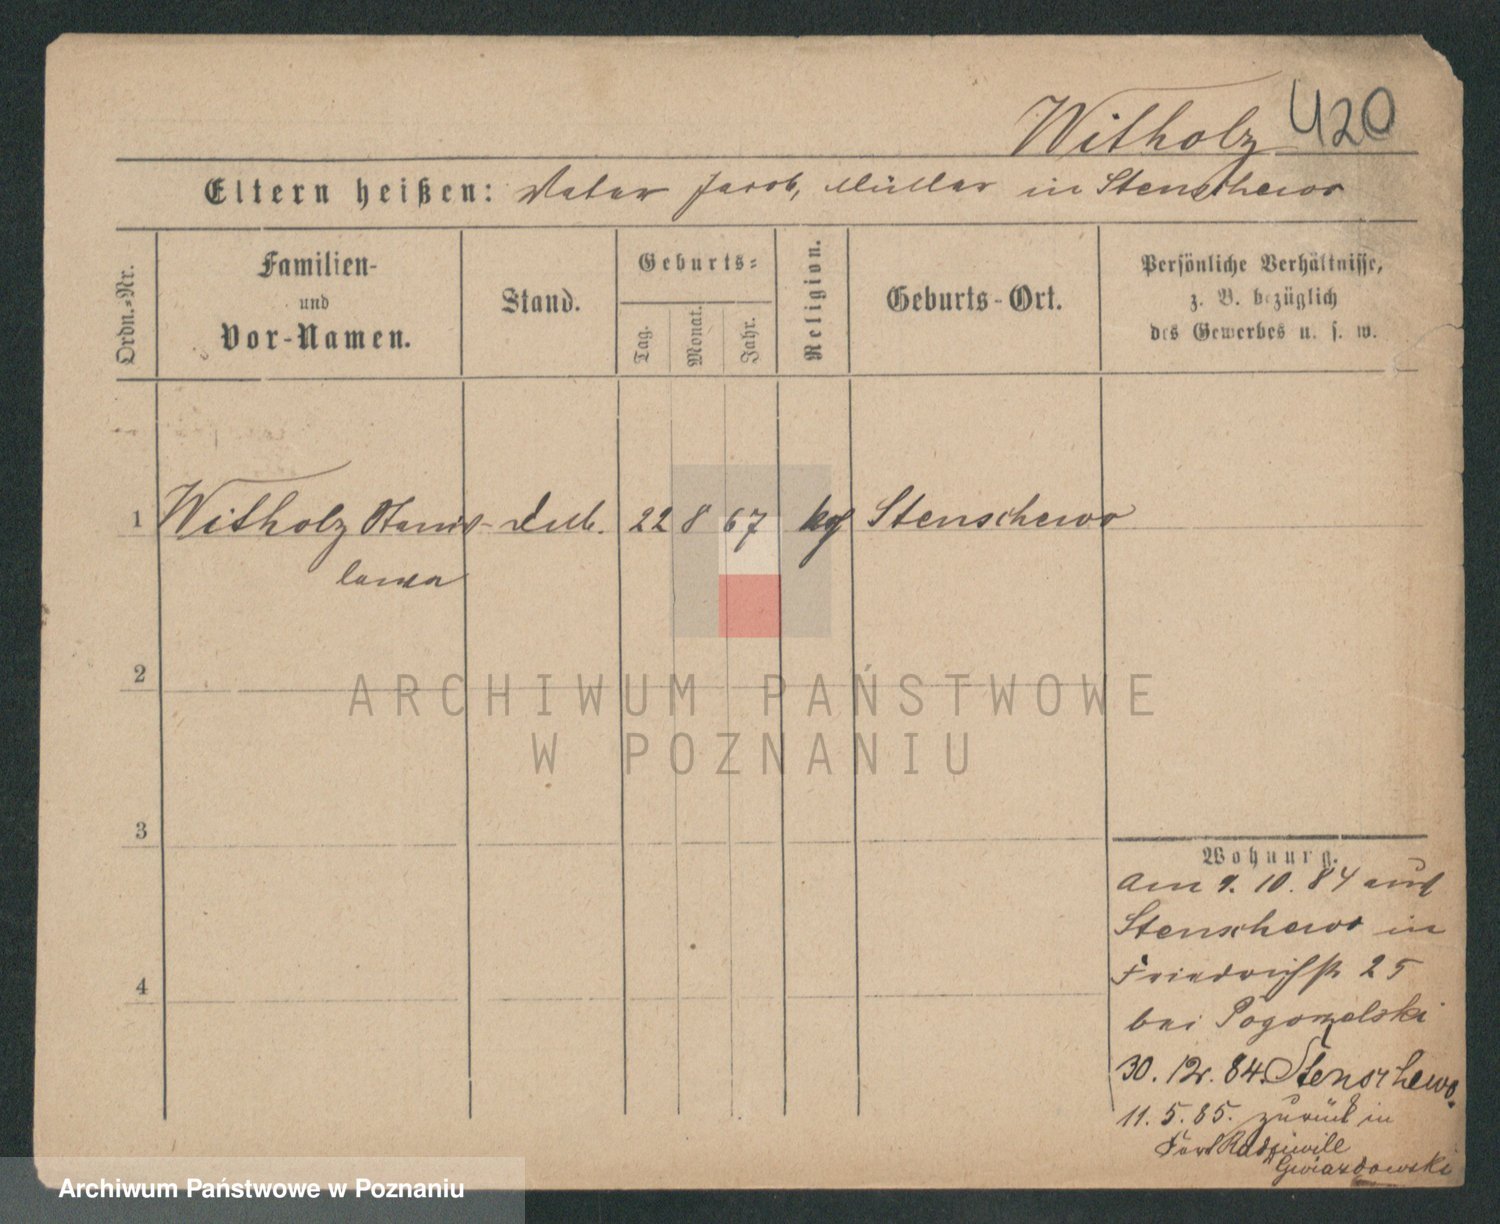 Witholz 420
Eltern heißen: Vater Jacob, Müller in Stenschewo
Ordn.-Nr.
Familien-
und
Vor-Namen.
Stand.
Geburts-
Tag.
Monat.
Jahr.
Religion.
Geburts-Ort.
Persönliche Verhältnisse,
z. B. bezüglich
des Gewerbes u. s. w.
1 Witholz Stanis- 22 8 67 kgl Stenschewo
lawa
2
ARCHIWUM PAŃSTWOWE
W POZNANIU
3
4
Wohnung.
Am 9. 10. 84 aus
Stenschewo in
Friedrichstr 25
bei Pogorzelski
30. 12. 84. Stenschewo.
11. 5. 85. zurück in
Fort Radziwill
Gwiazdowski
Archiwum Państwowe w Poznaniu